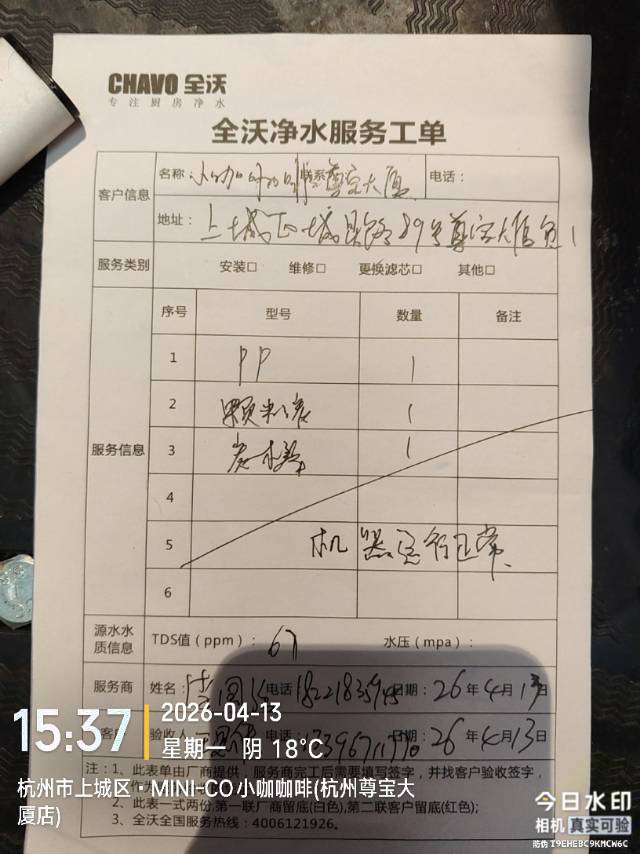 CHAVO 全沃
专注厨房净水
全沃净水服务工单
客户信息
名称: 小咖咖啡 联系 尊宝大厦 电话:
地址: 上城区 路89号尊宝大厦负1
服务类别 安装□ 维修□ 更换滤芯□ 其他□
服务信息
序号 型号 数量 备注
1 PP 1
2 颗粒炭 1
3 炭棒 1
4
5 机器运行正常
6
源水水质信息 TDS值(ppm): 67 水压(mpa):
服务商 姓名: 电话 日期: 26年4月13日
验收人 电话: 日期: 26年4月13日
注: 1、此表单由厂商提供,服务商完工后需要填写签字,并找客户验收签字,
2、此表一式两份,第一联厂商留底(白色),第二联客户留底(红色);
3、全沃全国服务热线: 4006121926.
15:37
2026-04-13
星期一 阴 18°C
杭州市上城区·MINI-CO小咖咖啡(杭州尊宝大
厦店)
今日水印
相机 真实可验
防伪 T9EHEBC9KMCW6C